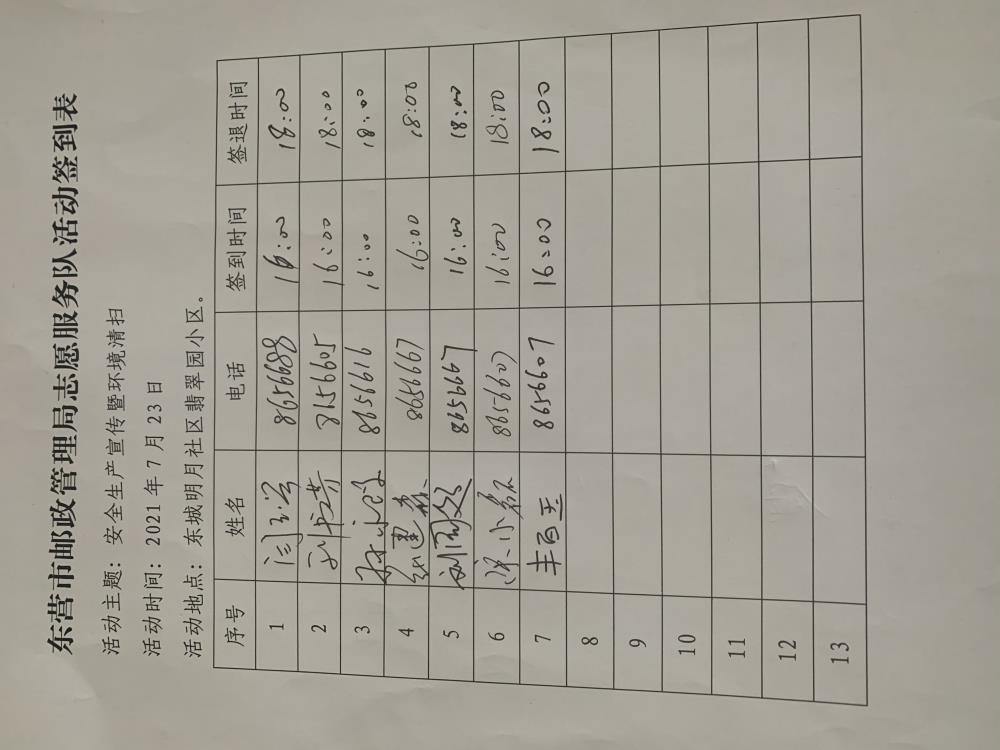 东营市邮政管理局志愿服务队活动签到表
活动主题：安全生产宣传暨环境清扫
活动时间：2021年7月23日
活动地点：东城明月社区翡翠园小区。
序号 姓名 电话 签到时间 签退时间
1 8656688 16:00 18:00
2 8156605 16:00 18:00
3 8656616 16:00 18:00
4 8656667 16:00 18:00
5 8656667 16:00 18:00
6 8656607 16:00 18:00
7 8656607 16:00 18:00
8
9
10
11
12
13